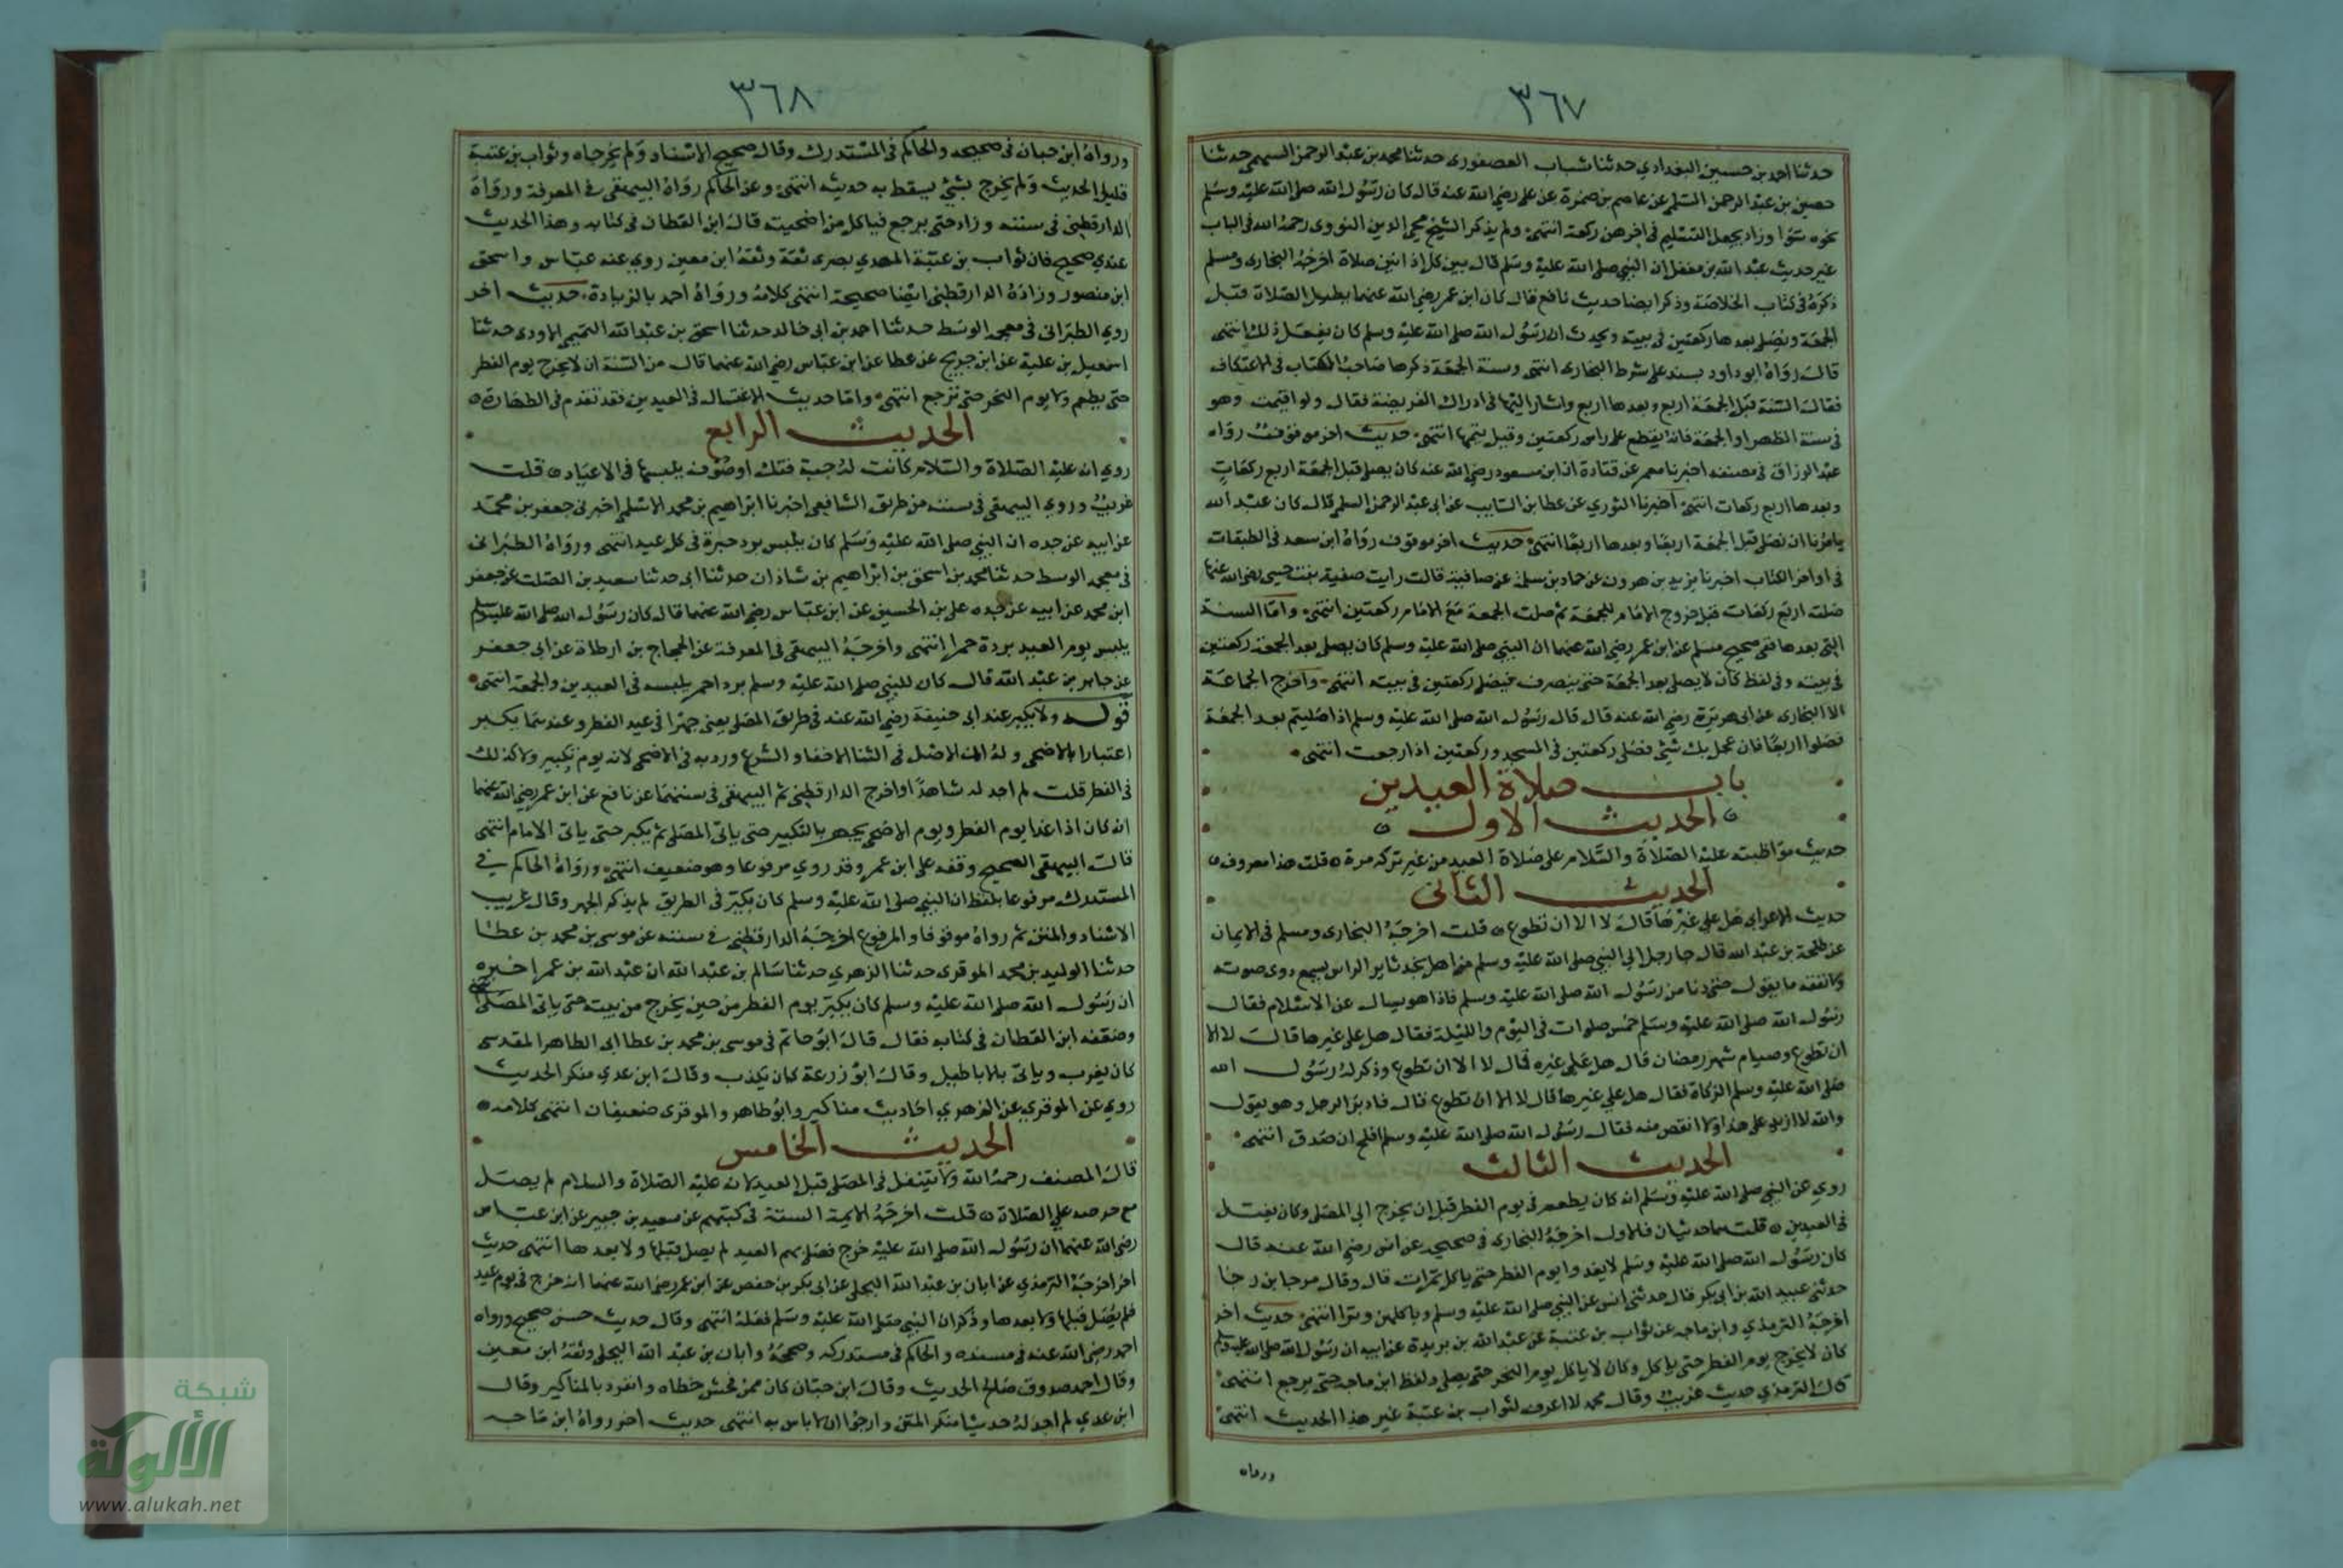 ٣٦٧
حدثنا احمد بن حسين البغدادي حدثنا شباب العصفورى حدثنا محمد بن عبد الرحمن السهمى حدثنا
حصين بن عبد الرحمن السلمى عن عاصم بن ضمرة عن على رضي الله عنه قال كان رسول الله صلى الله عليه وسلم
نحوه سوا وزاد يجعل التسليم فى اخرهن ركعة انتهى ولم يذكر الشيخ محيى الدين النووى رحمه الله فى الباب
غير حديث عبد الله بن مغفل ان النبي صلى الله عليه وسلم قال بين كل اذانين صلاة اخرجه البخارى ومسلم
ذكره فى كتاب الخلاصة وذكر ايضا حديث نافع قال كان ابن عمر رضي الله عنهما يطيل الصلاة قبل
الجمعة ويصلى بعدها ركعتين فى بيته ويحدث ان رسول الله صلى الله عليه وسلم كان يفعل ذلك انتهى
قال رواه ابو داود بسند على شرط البخارى انتهى وسنة الجمعة ذكرها صاحب الكتاب فى الاعتكاف
فقال السنة قبل الجمعة اربع وبعدها اربع واشار اليها فى ادراك الفريضة فقال ولو اقيمت وهو
فى سنة الظهر او الجمعة فانه يقطع على راس ركعتين وقيل يتمها انتهى حديث اخر موقوف رواه
عبد الرزاق فى مصنفه اخبرنا معمر عن قتادة ان ابن مسعود رضي الله عنه كان يصلى قبل الجمعة اربع ركعات
وبعدها اربع ركعات انتهى اخبرنا الثوري عن عطا بن السايب عن ابى عبد الرحمن السلمى قال كان عبد الله
يامرنا ان نصلى قبل الجمعة اربعا وبعدها اربعا انتهى حديث اخر موقوف رواه ابن سعد فى الطبقات
فى اواخر الكتاب اخبرنا يزيد بن هرون عن حماد بن سلمة عن صافية قالت رايت صفية بنت حيى رضي الله عنها
صلت اربع ركعات قبل خروج الامام للجمعة ثم صلت الجمعة مع الامام ركعتين انتهى واما السنة
التى بعدها ففى صحيح مسلم عن ابن عمر رضي الله عنهما ان النبي صلى الله عليه وسلم كان يصلى بعد الجمعة ركعتين
فى بيته وفى لفظ كان لا يصلى بعد الجمعة حتى ينصرف فيصلى ركعتين فى بيته انتهى واخرج الجماعة
الا البخارى عن ابى هريرة رضي الله عنه قال قال رسول الله صلى الله عليه وسلم اذا صليتم بعد الجمعة
فصلوا اربعا فان عجل بك شئ فصلى ركعتين فى المسجد وركعتين اذا رجعت انتهى
باب صلاة العيدين
الحديث الاول
حديث مواظبته عليه الصلاة والسلام على صلاة العيد من غير تركه مرة قلت هذا معروف
الحديث الثانى
حديث الاعرابى هل على غيرها قال لا الا ان تطوع قلت اخرجه البخارى ومسلم فى الايمان
عن طلحة بن عبد الله قال جا رجل الى النبي صلى الله عليه وسلم من اهل نجد ثاير الراس يسمع دوى صوته
ولا نفقه ما يقول حتى دنا من رسول الله صلى الله عليه وسلم فاذا هو يسال عن الاسلام فقال
رسول الله صلى الله عليه وسلم خمس صلوات فى اليوم والليلة فقال هل على غيرها قال لا الا
ان تطوع وصيام شهر رمضان قال هل على غيره قال لا الا ان تطوع وذكر له رسول الله
صلى الله عليه وسلم الزكاة فقال هل على غيرها قال لا الا ان تطوع قال فادبر الرجل وهو يقول
والله لا ازيد على هذا ولا انقص منه فقال رسول الله صلى الله عليه وسلم افلح ان صدق انتهى
الحديث الثالث
روى عن النبي صلى الله عليه وسلم انه كان يطعم فى يوم الفطر قبل ان يخرج الى المصلى وكان يغتسل
فى العيدين قلت هما حديثان فالاول اخرجه البخارى فى صحيحه عن انس رضي الله عنه قال
كان رسول الله صلى الله عليه وسلم لا يغدوا يوم الفطر حتى ياكل تمرات قال وقال مرجا بن رجا
حدثنى عبيد الله بن ابى بكر قال حدثنى انس عن النبي صلى الله عليه وسلم وياكلهن وترا انتهى حديث اخر
اخرجه الترمذي وابن ماجه عن ثواب بن عتبة عن عبد الله بن بريدة عن ابيه ان رسول الله صلى الله عليه وسلم
كان لا يخرج يوم الفطر حتى ياكل وكان لا ياكل يوم النحر حتى يصلى ولفظ ابن ماجه حتى يرجع انتهى
قال الترمذي حديث غريب وقال محمد لا اعرف لثواب بن عتبة غير هذا الحديث انتهى
ورواه
٣٦٨
ورواه ابن حبان فى صحيحه والحاكم فى المستدرك وقال صحيح الاسناد ولم يخرجاه وثواب بن عتبة
قليل الحديث ولم يخرج بشئ يسقط به حديثه انتهى وعن الحاكم رواه البيهقى فى المعرفة ورواه
الدارقطنى فى سننه وزاد حتى يرجع فياكل من اضحيته قال ابن القطان فى كتابه وهذا الحديث
عندي صحيح فان ثواب بن عتبة المهري بصرى ثقة وثقه ابن معين روى عنه عباس واسحق
ابن منصور وزاده الدارقطنى ايضا صحيحة انتهى كلامه ورواه احمد بالزيادة حديث اخر
روى الطبرانى فى معجمه الوسط حدثنا احمد بن ابى خالد حدثنا اسحق بن عبد الله التميمى الاودى حدثنا
اسمعيل بن علية عن ابن جريج عن عطا عن ابن عباس رضي الله عنهما قال من السنة ان لا يخرج يوم الفطر
حتى يطعم ولا يوم النحر حتى ترجع انتهى واما حديث الاغتسال فى العيدين فقد تقدم فى الطهارة
الحديث الرابع
روى انه عليه الصلاة والسلام كانت له جبة فنك او صوف يلبسها فى الاعياد قلت
غريب وروى البيهقى فى سننه من طريق الشافعى اخبرنا ابراهيم بن محمد الاسلمى اخبرنى جعفر بن محمد
عن ابيه عن جده ان النبي صلى الله عليه وسلم كان يلبس برد حبرة فى كل عيد انتهى ورواه الطبرانى
فى معجمه الوسط حدثنا محمد بن اسحق بن ابراهيم بن شاذان حدثنا ابى حدثنا سعيد بن الصلت عن جعفر
ابن محمد عن ابيه عن جده على بن الحسين عن ابن عباس رضي الله عنهما قال كان رسول الله صلى الله عليه وسلم
يلبس يوم العيد بردة حمرا انتهى واخرجه البيهقى فى المعرفة عن الحجاج بن ارطاة عن ابى جعفر
عن جابر بن عبد الله قال كان للنبي صلى الله عليه وسلم برد احمر يلبسه فى العيدين والجمعة انتهى
قوله ولا يكبر عند ابى حنيفة رضي الله عنه فى طريق المصلى يعنى جهرا فى عيد الفطر وعندهما يكبر
اعتبارا بالاضحى وله ان الاصل فى الثنا الاخفا والشرع ورد به فى الاضحى لانه يوم تكبير ولا كذلك
فى الفطر قلت لم اجد له شاهدا واخرج الدارقطنى ثم البيهقى فى سننهما عن نافع عن ابن عمر رضي الله عنهما
انه كان اذا غدا يوم الفطر ويوم الاضحى يجهر بالتكبير حتى ياتى المصلى ثم يكبر حتى ياتى الامام انتهى
قال البيهقى الصحيح وقفه على ابن عمر وقد روى مرفوعا وهو ضعيف انتهى ورواه الحاكم فى
المستدرك مرفوعا بلفظ ان النبي صلى الله عليه وسلم كان يكبر فى الطريق لم يذكر الجهر وقال غريب
الاسناد والمتن ثم رواه موقوفا والمرفوع اخرجه الدارقطنى فى سننه عن موسى بن محمد بن عطا
حدثنا الوليد بن محمد الموقرى حدثنا الزهري حدثنا سالم بن عبد الله ان عبد الله بن عمر اخبره
ان رسول الله صلى الله عليه وسلم كان يكبر يوم الفطر من حين يخرج من بيته حتى ياتى المصلى انتهى
وضعفه ابن القطان فى كتابه فقال قال ابو حاتم فى موسى بن محمد بن عطا ابى الطاهر المقدسى
كان يغرب وياتى بالاباطيل وقال ابو زرعة كان يكذب وقال ابن عدي منكر الحديث
روى عن الموقري عن الزهري احاديث مناكير وابو طاهر والموقرى ضعيفان انتهى كلامه
الحديث الخامس
قال المصنف رحمه الله ولا يتنفل فى المصلى قبل العيد لانه عليه الصلاة والسلام لم يصل
مع حرصه على الصلاة قلت اخرجه الايمة الستة فى كتبهم عن سعيد بن جبير عن ابن عباس
رضي الله عنهما ان رسول الله صلى الله عليه خرج فصلى بهم العيد لم يصل قبلها ولا بعدها انتهى حديث
اخر اخرجه الترمذي عن ابان بن عبد الله البجلى عن ابى بكر بن حفص عن ابن عمر رضي الله عنهما انه خرج فى يوم عيد
فلم يصل قبلها ولا بعدها وذكر ان النبي صلى الله عليه وسلم فعله انتهى وقال حديث حسن صحيح ورواه
احمد رضي الله عنه فى مسنده والحاكم فى مستدركه وصححه وابان بن عبد الله البجلى وثقه ابن معين
وقال احمد صدوق صالح الحديث وقال ابن حبان كان ممن فحش خطاه وانفرد بالمناكير وقال
ابن عدي لم اجد له حديثا منكر المتن وارجوا ان لا باس به انتهى حديث اخر رواه ابن ماجه
شبكة
الألوكة
www.alukah.net